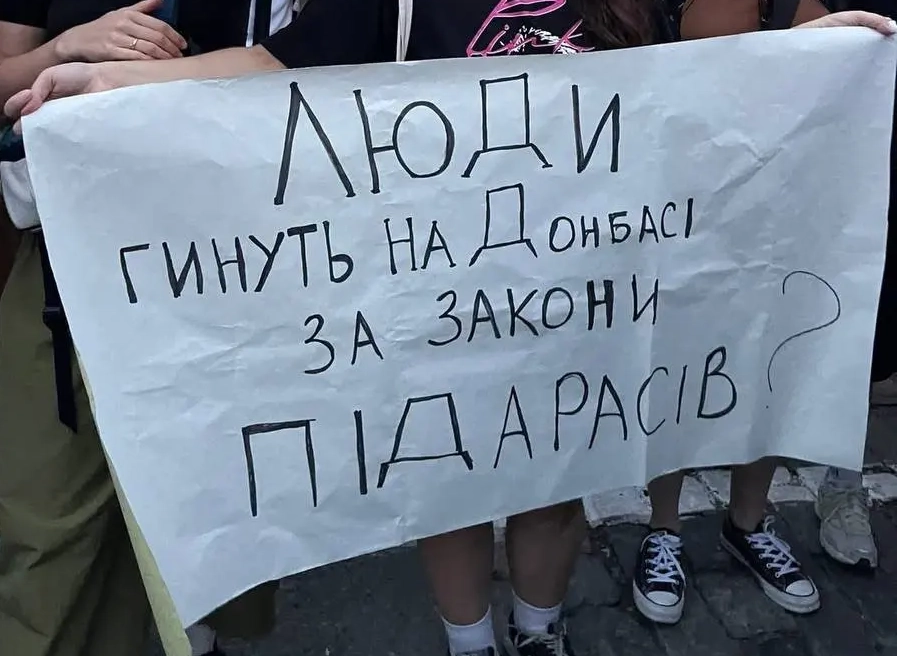 Pink
ЛЮДИ
ГИНУТЬ НА ДОНБАСІ
ЗА ЗАКОНИ
ПІДАРАСІВ?